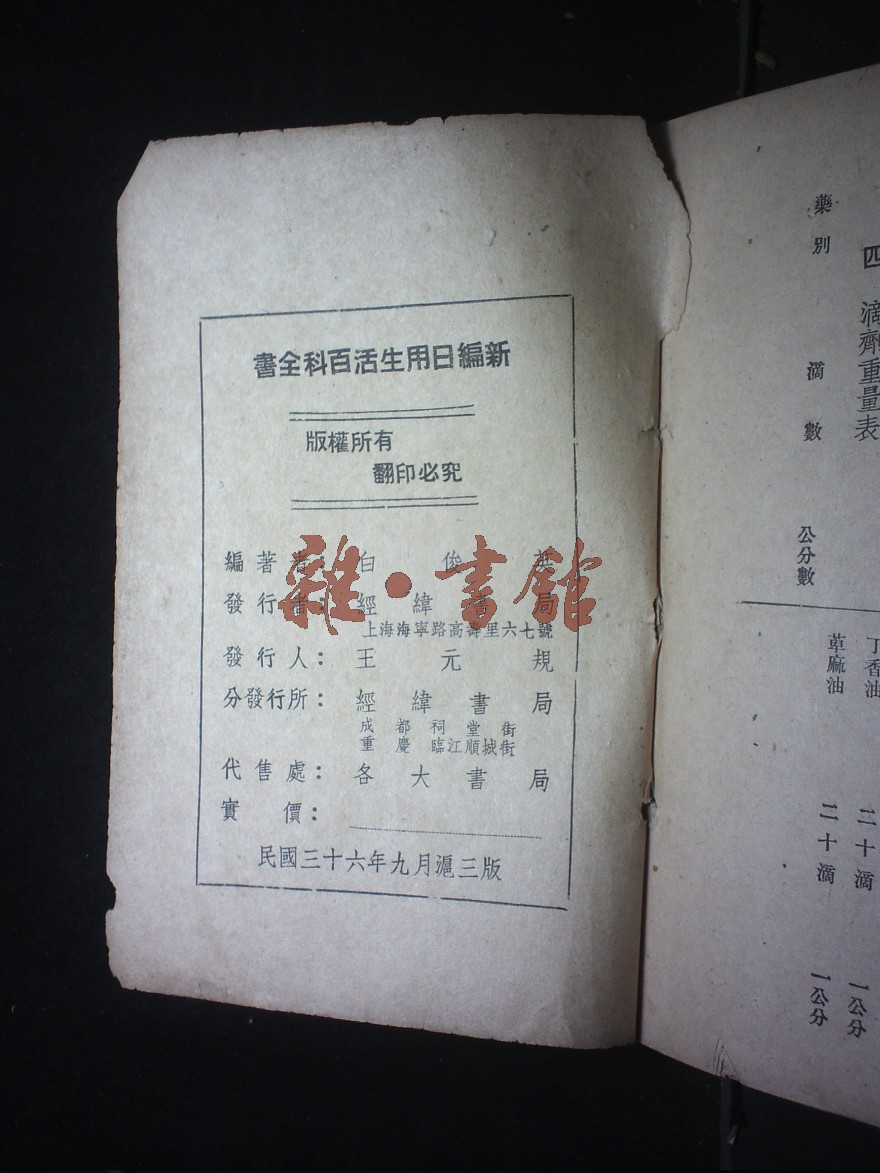 新編日用生活百科全書
版權所有
翻印必究
編著者：白俊英
發行者：經緯書局
上海海寧路高壽里六七號
發行人：王元規
分發行所：經緯書局
成都祠堂街
重慶臨江順城街
代售處：各大書局
實價：
民國三十六年九月滬三版
雜·書館
四 滴劑重量表
藥別 滴數 公分數
丁香油 二十滴 一公分
萆麻油 二十滴 一公分